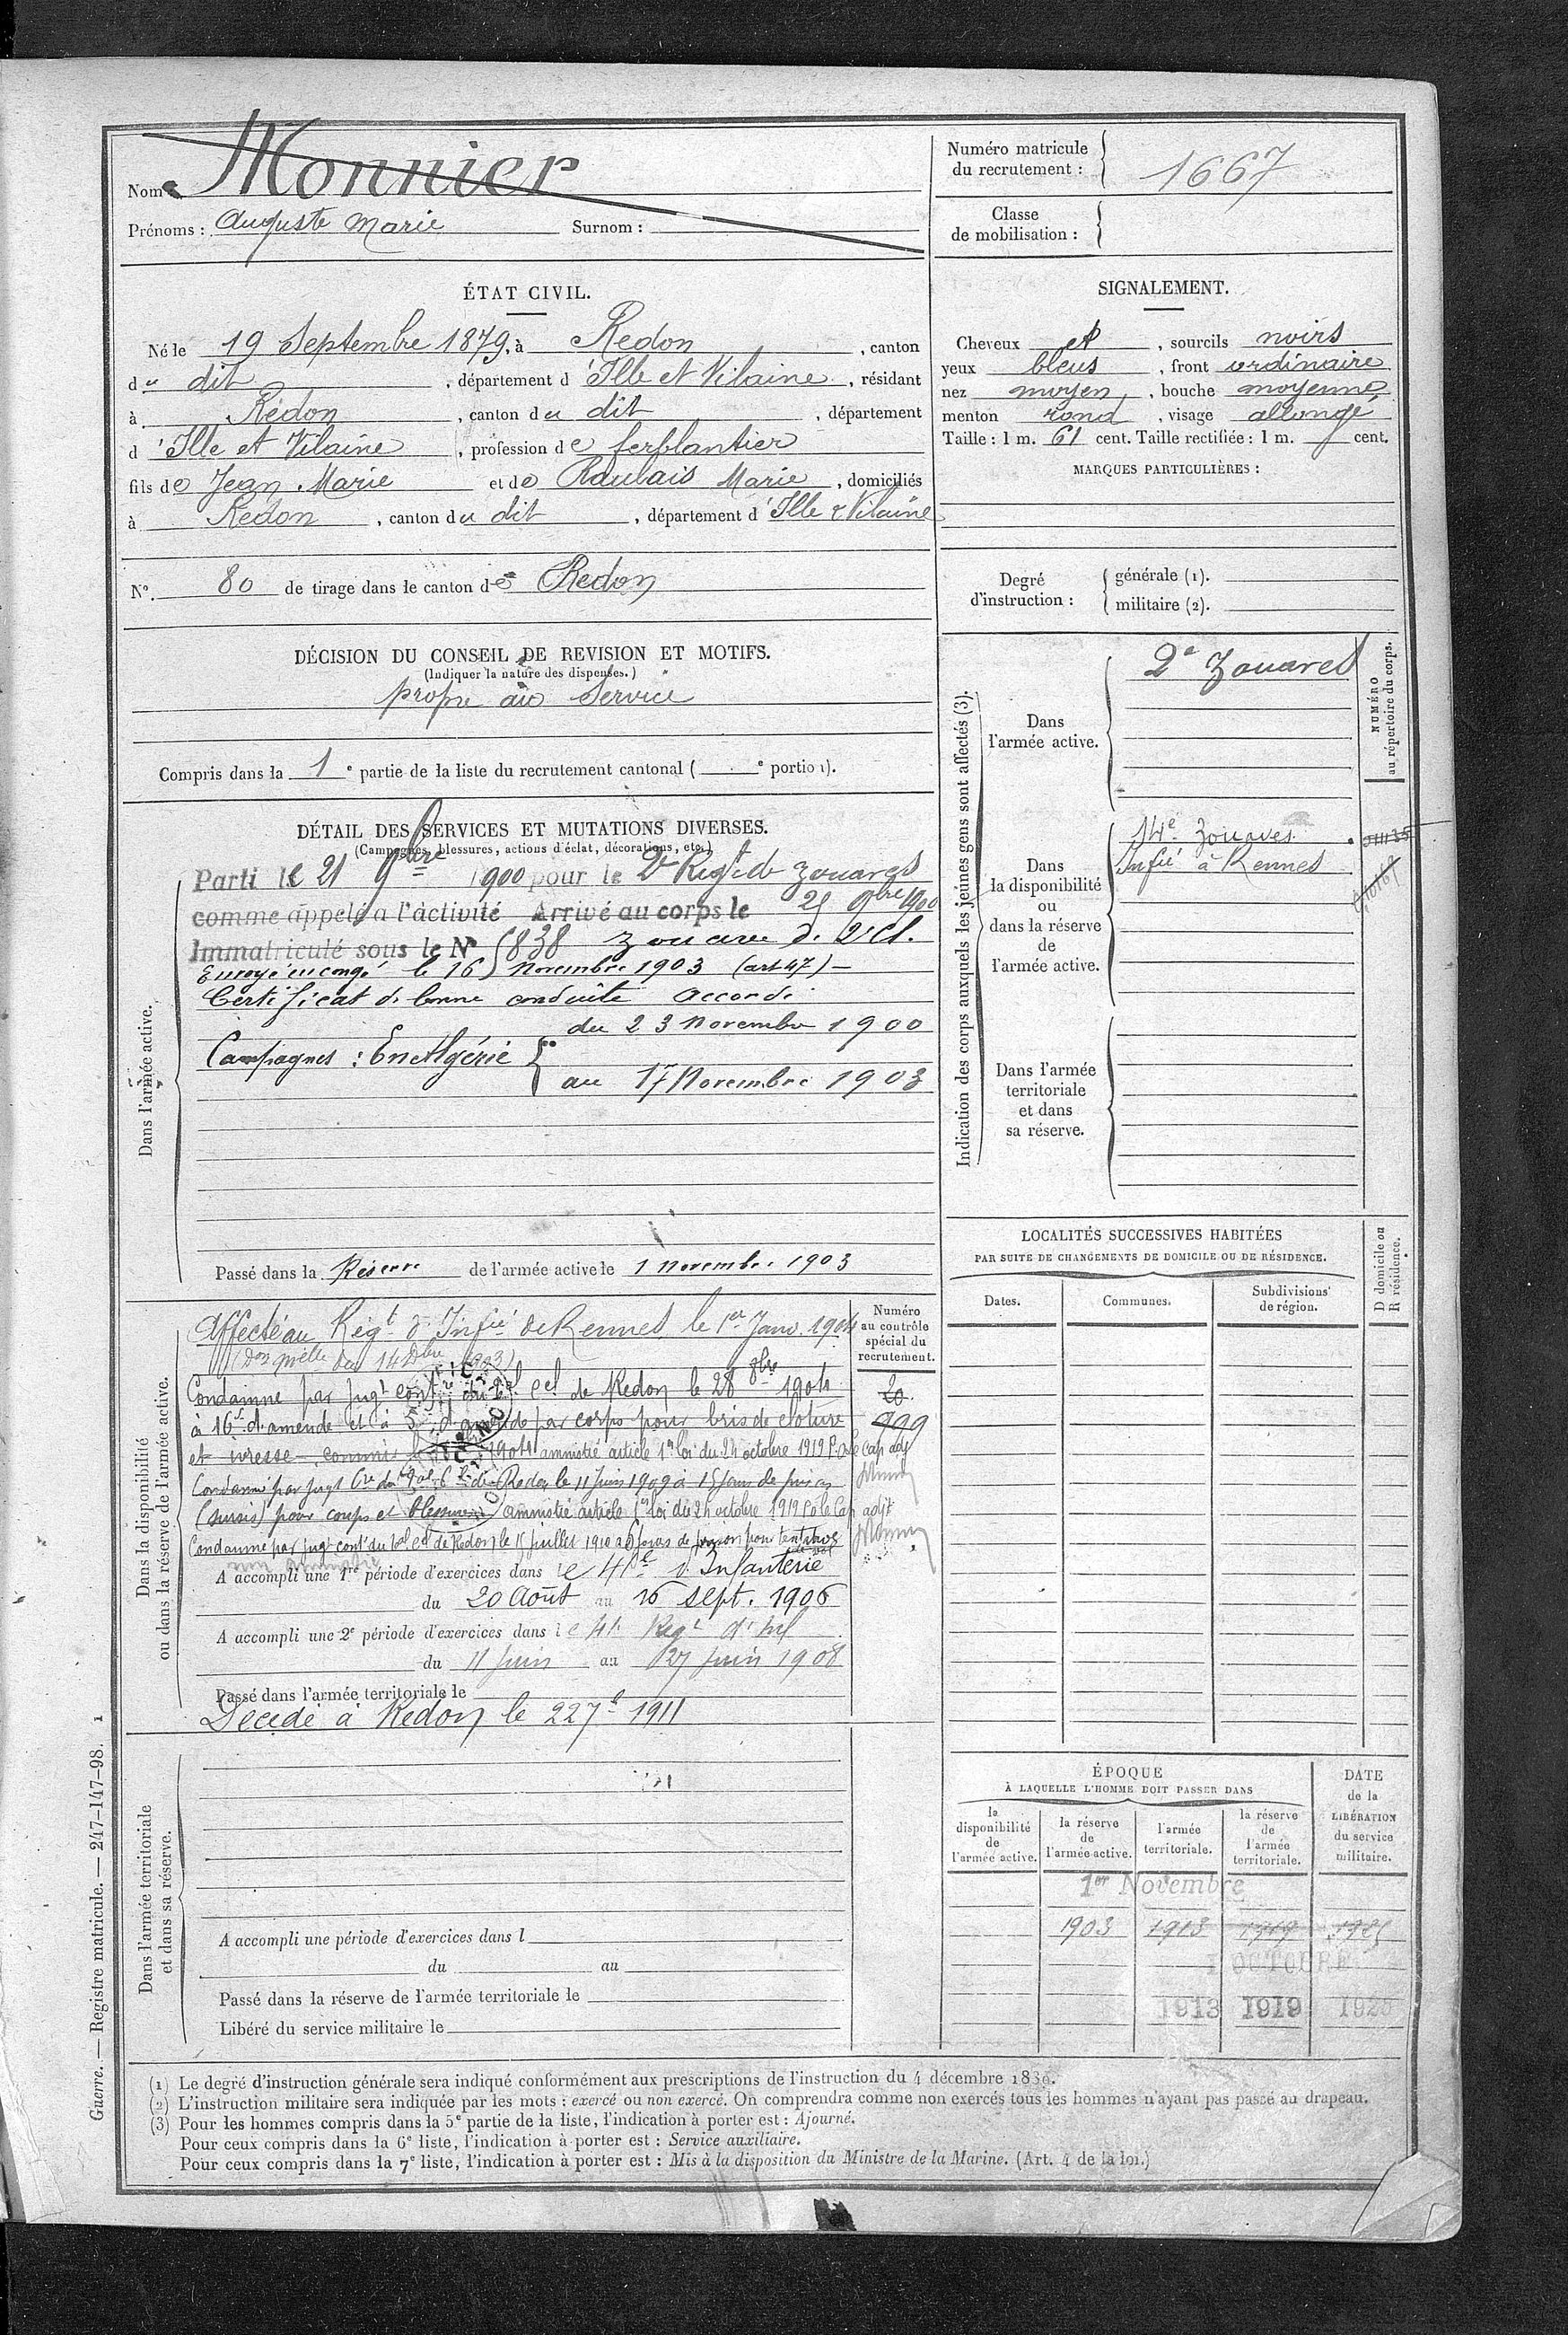 Nom : Monnier
Prénoms : Auguste Marie Surnom :
Numéro matricule
du recrutement : 1667
Classe
de mobilisation :
ÉTAT CIVIL.
Né le 19 Septembre 1879, à Redon, canton
du dit, département d'Ille et Vilaine, résidant
à Redon, canton du dit, département
d'Ille et Vilaine, profession de ferblantier
fils de Jean Marie et de Marie, domiciliés
à Redon, canton du dit, département d'Ille & Vilaine
N°. 80 de tirage dans le canton de Redon
SIGNALEMENT.
Cheveux et, sourcils noirs
yeux bleus, front ordinaire
nez moyen, bouche moyenne
menton rond, visage allongé
Taille : 1 m. 61 cent. Taille rectifiée : 1 m. cent.
MARQUES PARTICULIÈRES :
Degré
d'instruction :
générale (1).
militaire (2).
DÉCISION DU CONSEIL DE REVISION ET MOTIFS.
(Indiquer la nature des dispenses.)
propre au Service
Compris dans la 1e partie de la liste du recrutement cantonal ( e portion).
DÉTAIL DES SERVICES ET MUTATIONS DIVERSES.
(Campagnes, blessures, actions d'éclat, décorations, etc.)
Dans l'armée active.
Parti le 21 9bre 1900 pour le 2e Regt de Zouaves
comme appelé à l'activité Arrivé au corps le 9bre 1900
Immatriculé sous le N° 5838 Zouave de 2e Cl.
Envoyé en congé le 16 Novembre 1903 (art 47) —
Certificat de bonne conduite accordé
du 23 Novembre 1900
Campagnes : En Algérie
au 17 Novembre 1903
Passé dans la Réserve de l'armée active le 1 novembre 1903
Indication des corps auxquels les jeunes gens sont affectés (3).
Dans
l'armée active.
2e Zouaves
Dans
la disponibilité
ou
dans la réserve
de
l'armée active.
14e Zouaves
Infie à Rennes
Dans l'armée
territoriale
et dans
sa réserve.
NUMÉRO
au répertoire du corps.
Dans la disponibilité
ou dans la réserve de l'armée active.
Numéro
au contrôle
spécial du
recrutement.
20
999
Affecté au Régt d'Infie de Rennes le 1er Janv. 1904
(Don mелle du 14 Dbre 1903)
Condamné par jugt de Redon le 28 8bre 1904
à 16f d'amende et à 5f d'amende par corps pour bris de cloture
et ivresse 1904 amnistié article 1er loi du 24 octobre 1919 P. le cap adj
Condamné par jugt de Redon le 11 Juin 1909 à 15 jours de prison
(sursis) pour coups et blessures amnistié article 1er loi du 24 octobre 1919 P. le Cap adjt
Condamné par jugt de Redon le juillet 1910 à jours de prison pour
A accompli une 1re période d'exercices dans le 41e d'Infanterie
du 20 Août au 16 Sept. 1906
A accompli une 2e période d'exercices dans le 41e Regt d'Inf
du 11 Juin au 27 Juin 1908
Passé dans l'armée territoriale le
Décédé à Redon le 22 7bre 1911
LOCALITÉS SUCCESSIVES HABITÉES
PAR SUITE DE CHANGEMENTS DE DOMICILE OU DE RÉSIDENCE.
Dates.
Communes.
Subdivisions
de région.
D domicile ou
R résidence.
Dans l'armée territoriale
et dans sa réserve.
A accompli une période d'exercices dans l
du au
Passé dans la réserve de l'armée territoriale le
Libéré du service militaire le
ÉPOQUE
À LAQUELLE L'HOMME DOIT PASSER DANS
la
disponibilité
de
l'armée active.
la réserve
de
l'armée active.
l'armée
territoriale.
la réserve
de
l'armée
territoriale.
DATE
de la
LIBÉRATION
du service
militaire.
1er Novembre
1903 1913 1919 1925
1 OCTOBRE
1913 1919 1925
(1) Le degré d'instruction générale sera indiqué conformément aux prescriptions de l'instruction du 4 décembre 1889.
(2) L'instruction militaire sera indiquée par les mots : exercé ou non exercé. On comprendra comme non exercés tous les hommes n'ayant pas passé au drapeau.
(3) Pour les hommes compris dans la 5e partie de la liste, l'indication à porter est : Ajourné.
Pour ceux compris dans la 6e liste, l'indication à porter est : Service auxiliaire.
Pour ceux compris dans la 7e liste, l'indication à porter est : Mis à la disposition du Ministre de la Marine. (Art. 4 de la loi.)
Guerre. — Registre matricule. — 247-147-98. 1